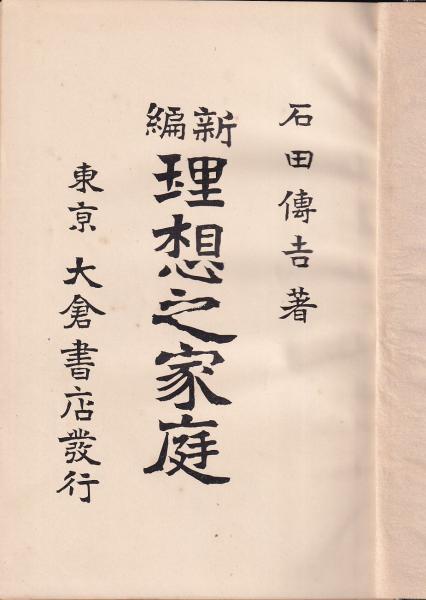 石田傳吉著
新編
理想之家庭
東京 大倉書店發行